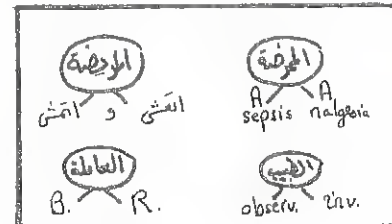 المريضة
اتعشى و اتمشى
الممرضة
A A
sepsis nalgesia
العاملة
B. R.
الطبيب
observ. inv.